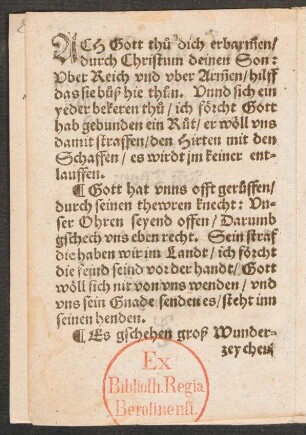 ACH Gott thů dich erbarm̃en/
durch Christum deinen Son:
Vber Reich vnd vber Arm̃en/hilff
das sie bůß hie thůn. Vnnd sich ein
yeder bekeren thů/ ich förcht Gott
hab gebunden ein Růt/ er wöll vns
damit straffen/ den Hirten mit den
Schaffen/ es wirdt jm keiner ent-
lauffen.
¶ Gott hat vnns offt gerůffen/
durch seinen thewren knecht: Vn-
ser Ohren seyend offen/ Darumb
gschech vns eben recht. Sein straf
die haben wir im Landt/ ich förcht
die feind seind vor der handt/ Gott
wöll sich nit von vns wenden/ vnd
vns sein Gnade senden es/ steht inn
seinen henden.
¶ Es gschehen groß Wunder-
zeychen
Ex
Biblioth. Regia
Berolinensi.